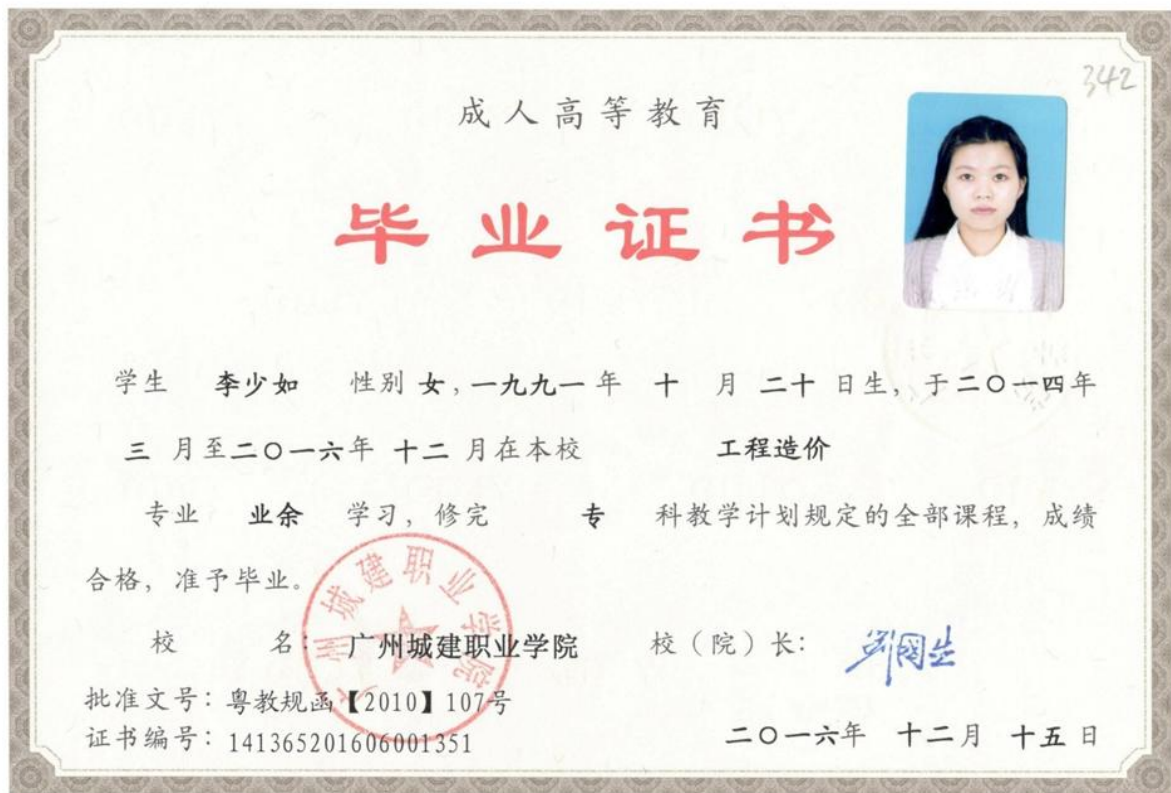 342
成人高等教育
毕业证书
学生 李少如 性别 女,一九九一 年 十 月 二十 日生, 于二〇一四年
三 月至二〇一六年 十二 月在本校 工程造价
专业 业余 学习, 修完 专 科教学计划规定的全部课程, 成绩
合格, 准予毕业。
广州城建职业学院
校 名: 广州城建职业学院 校(院)长:
批准文号: 粤教规函【2010】107号
证书编号: 141365201606001351
二〇一六年 十二月 十五 日